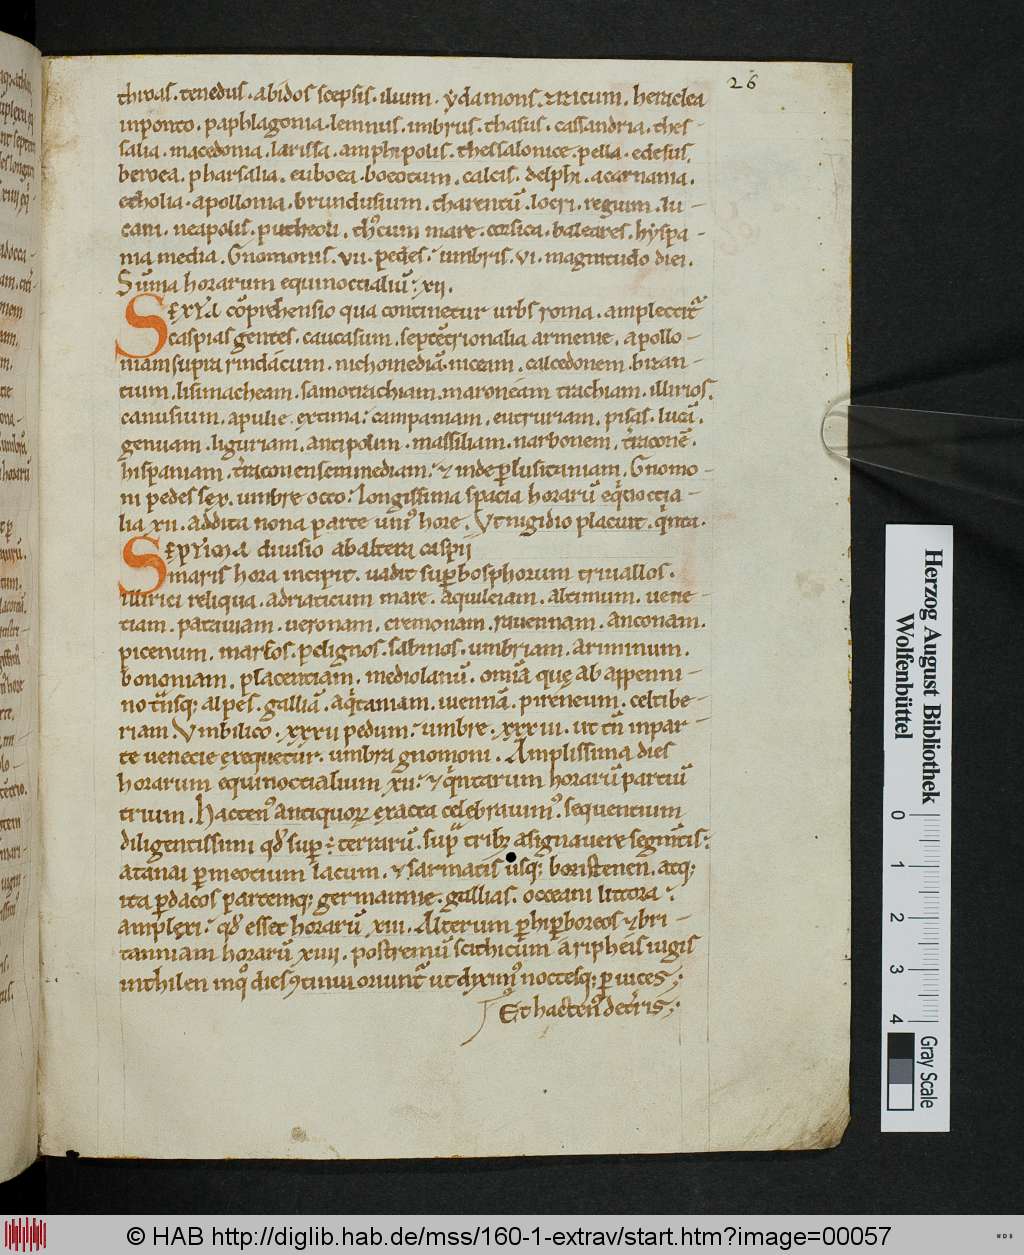 26
throas . tenedus . abidos scepsis . ilium . ydamons . &zicum . heraclea
inponto . paphlagonia . lemnus . imbrus . thasus . cassandria . thes-
salia . macedonia . larissa . amphipolis . thessalonice . pella . edesus.
beroea . pharsalia . euboea . boeotum . calcis . delphi . acarnania .
etholia . apollonia . brundusium . tharentū . locri . regium . lu-
cani . neapolis . putheoli . thꝰcum mare . corsica . baleares . hyspa-
nia media . Gnomonis . vii . pedes . umbris . vi . magnitudo diei .
Sūma horarum equinoctialiū : xii .
SEXTA cōprehensio qua continetur urbs roma . amplectitᷣ
caspias gentes . caucasum . septētrionalia armenie . apollo-
niam supra rindacum . nichomediā . niceam . calcedonem . bizan-
tium . lisimacheam . samotrachiam . maroneam . trachiam . illirios .
canusium . apulie . extima : campaniam . eutruriam . pisas . lucā .
genuam . liguriam . antipolim . massiliam . narbonem . traconē .
hispaniam . traconensem mediam : & inde p̱ lusitaniam . Gnomo-
ni pedes sex . umbre octo : longissima spacia horarū eqͥnoctia-
lia xii . addita nona parte uniꝰ hore . Ut nigidio placuit . qͥnta .
SEPTIMA diuisio ab altera caspii
maris hora incipit . uadit suꝑ bosphorum triuallos .
illirici reliqua . adriaticum mare . aquileiam . altinum . uene-
tiam . patauiam . ueronam . cremonam . rauennam . anconam .
picenum . marsos . pelignos . sabinos . umbriam . ariminum .
bononiam . placentiam . mediolanū . omīa quę ab appenni-
no tͥnsq; alpes . galliā . aqͥtaniam . uiennā . pireneum . celtibe-
riam Vmbilico . xxxv pedum : umbre . xxxvi . ut tn̄ in par-
te uenecie exequetur . umbra gnomoni . Amplissima dies
horarum equinoctialium xv : & qͥntarum horarū partiū
trium . Hactenꝰ antiquorꝝ exacta celebrauimꝰ . sequentium
diligentissimi qd̄ suꝑ : terrarū . suꝑ tribꝫ asignauere segmītis :
a tanai ꝑ meotium lacum . & sarmatis usq; boristenen . atq;
ita ꝑ dacos partemq; germannie . gallias . occeani littora .
amplexi : qd̄ esset horarū xiii . Alterum ꝑ hiꝑboreos & bri-
tanniam horarū xviii . postremū scithicum a ripheis iugis
in thilen in qͦ dies ꝯtinui oriunt̄ ut diximꝰ noctesq; ꝑ uices .
Et hactenꝰ de tr̄is .
Herzog August Bibliothek
Wolfenbüttel
0 1 2 3 4
Gray Scale
© HAB http://diglib.hab.de/mss/160-1-extrav/start.htm?image=00057